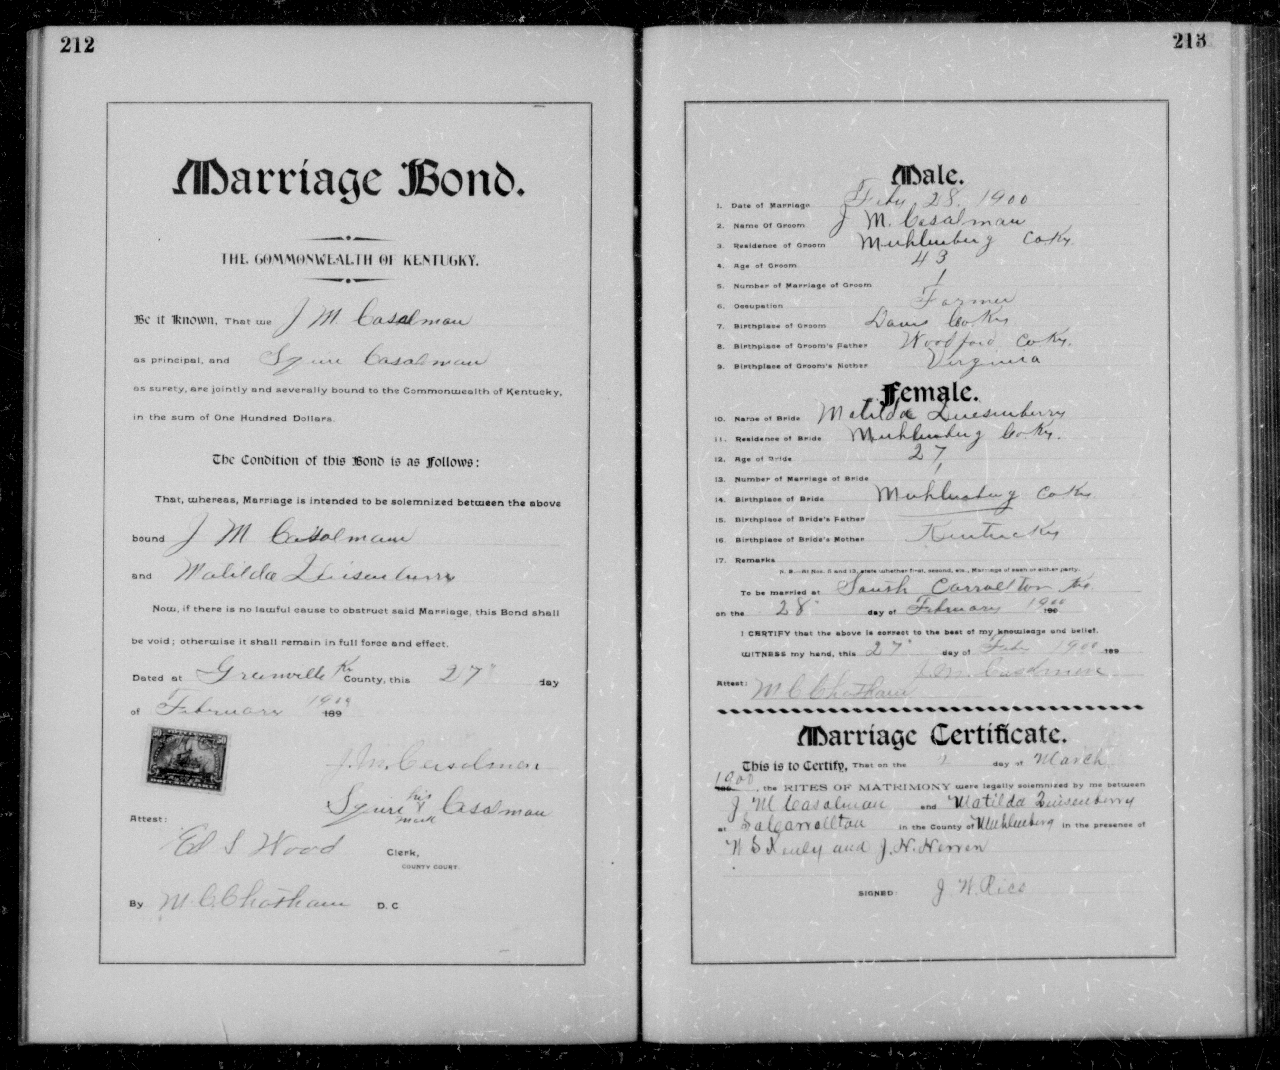 212
Marriage Bond.
THE COMMONWEALTH OF KENTUCKY.
Be it Known, That we J M. Casalman
as principal, and Squire Casalman
as surety, are jointly and severally bound to the Commonwealth of Kentucky,
in the sum of One Hundred Dollars.
The Condition of this Bond is as Follows:
That, whereas, Marriage is intended to be solemnized between the above
bound J M Casalman
and Matilda Quisenberry
Now, if there is no lawful cause to obstruct said Marriage, this Bond shall
be void; otherwise it shall remain in full force and effect.
Dated at Greenville Ky County, this 27" day
of February 1900 189
J. M. Casalman
Squire his X mark Casalman
Attest:
Ed S Wood Clerk,
COUNTY COURT.
By M. C. Chatham D. C
213
Male.
1. Date of Marriage Feby 28, 1900
2. Name Of Groom J M. Casalman
3. Residence of Groom Muhlenberg Co Ky.
4. Age of Groom 43
5. Number of Marriage of Groom 1
6. Occupation Farmer
7. Birthplace of Groom Davis Co Ky
8. Birthplace of Groom's Father Woodford Co Ky.
9. Birthplace of Groom's Mother Virginia
Female.
10. Name of Bride Matilda Quisenberry
11. Residence of Bride Muhlenberg Co Ky.
12. Age of Bride 27
13. Number of Marriage of Bride 1
14. Birthplace of Bride Muhlenberg Co Ky
15. Birthplace of Bride's Father
16. Birthplace of Bride's Mother Kentucky
17. Remarks
N. B.—At Nos. 5 and 13, state whether first, second, etc., Marriage of each or either party.
To be married at South Carrollton Ky.
on the 28" day of February 1900 190
I CERTIFY that the above is correct to the best of my knowledge and belief.
WITNESS my hand, this 27" day of Feby 1900 189
J. M. Casalman
Attest: M C Chatham
Marriage Certificate.
This is to Certify, That on the 1 day of March
1900 189, the RITES OF MATRIMONY were legally solemnized by me between
J M Casalman and Matilda Quisenberry
at So Carrollton in the County of Muhlenberg in the presence of
and J. N.
SIGNED J W. Rice